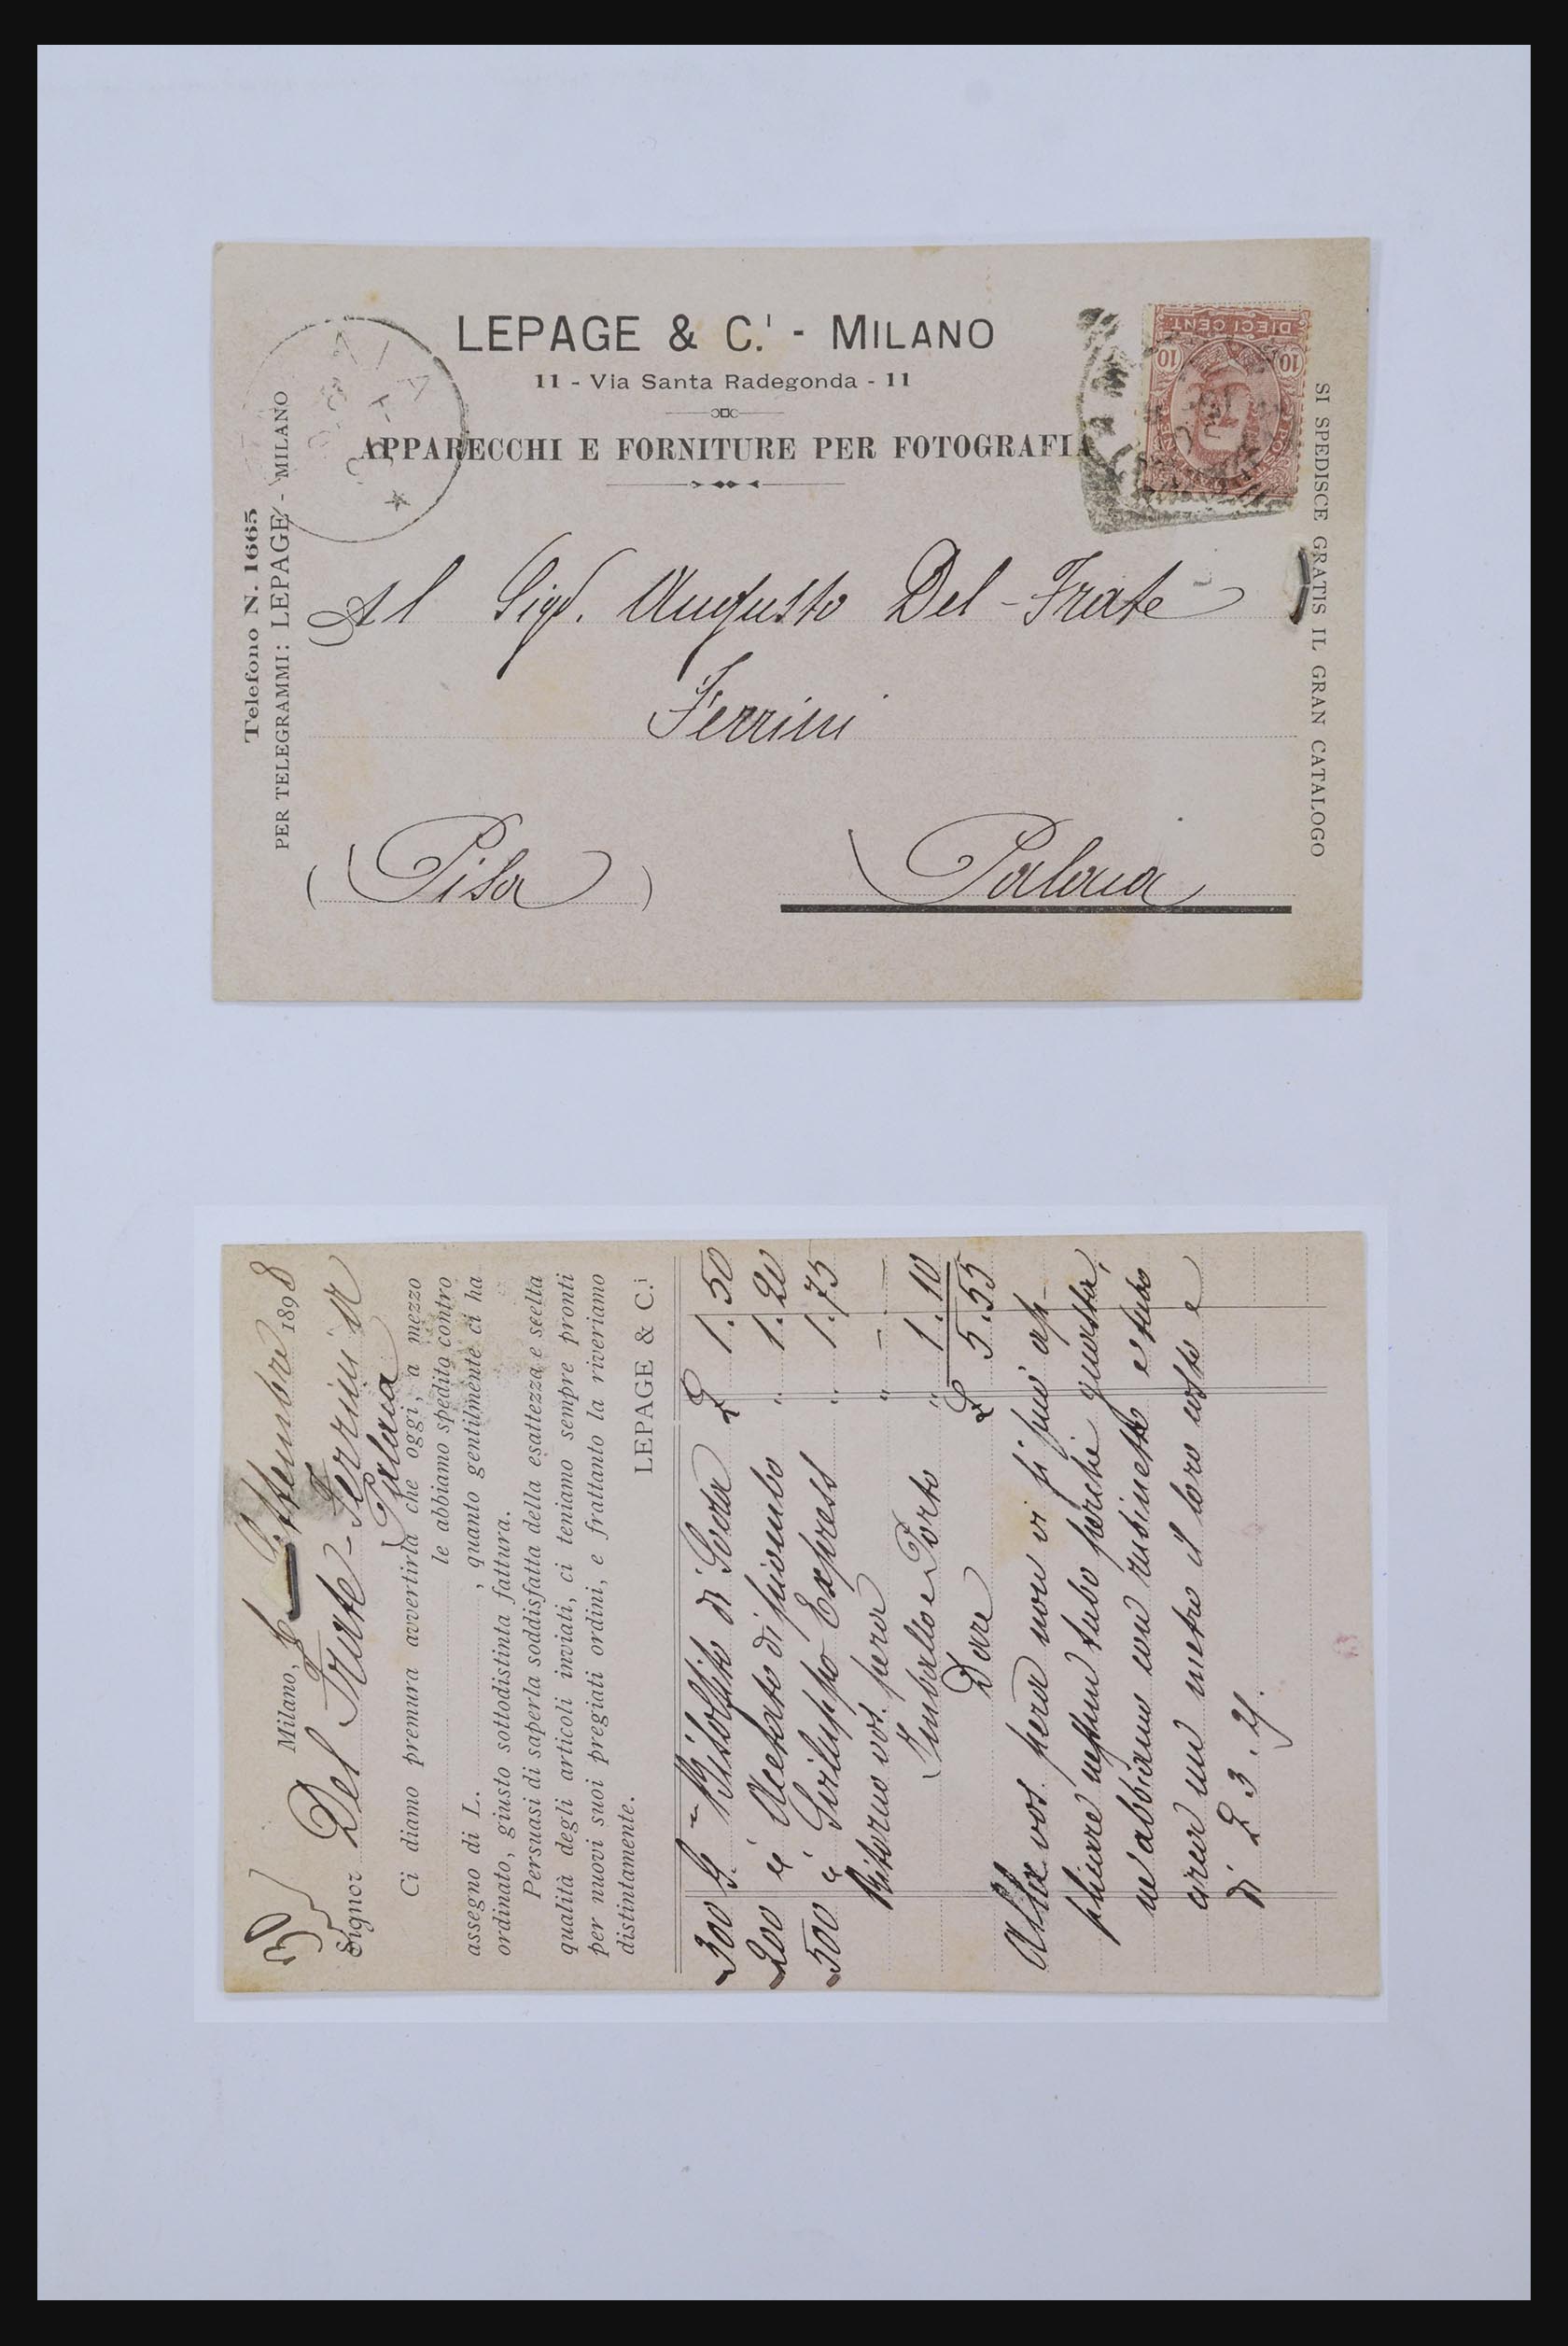 LEPAGE & C.ⁱ - MILANO
11 - Via Santa Radegonda - 11
APPARECCHI E FORNITURE PER FOTOGRAFIA
Telefono N. 1665
PER TELEGRAMMI: LEPAGE - MILANO
DIECI CENT.
10 10
SI SPEDISCE GRATIS IL GRAN CATALOGO
Al Sigr. Augusto Del-Frate
Ferrini
(Pisa) Palaia
30
Milano, 6 Settembre 1898
Signor Del Frate-Ferrini A
Palaia
Ci diamo premura avvertirla che oggi, a mezzo
le abbiamo spedito contro
assegno di L. , quanto gentilmente ci ha
ordinato, giusto sottodistinta fattura.
Persuasi di saperla soddisfatta della esattezza e scelta
qualità degli articoli inviati, ci teniamo sempre pronti
per nuovi suoi pregiati ordini, e frattanto la riveriamo
distintamente.
LEPAGE & C.ⁱ
300 G. - Bisolfito di Soda £ 1. 50
200 " Acetato di piombo " 1. 20
500 " Sviluppo Express " 1. 75
Ritorno vos. pera " - -
Imballo e Porto " 1. 10
Dare £ 5. 55
Alla vos. pera non vi si può ap-
plicare nessun tubo perchè guasta,
ne abbiamo con rubinetto e tubo
circa un metro il loro costo è
di £ 3.